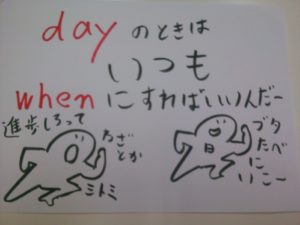 day のときは
いつも
when にすればいいんだー
進歩しろって
わざとか
ミトミ
ブタ
たべ
に
いこー
日